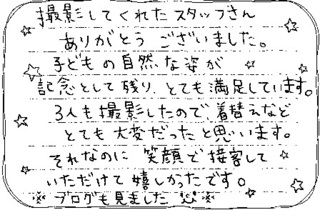 撮影してくれたスタッフさん
ありがとうございました。
子どもの自然な姿が
記念として残り、とても満足しています。
3人も撮影したので、着替えなど
とても大変だったと思います。
それなのに 笑顔で接客して
いただけて嬉しかったです。
※ブログも見ました ※